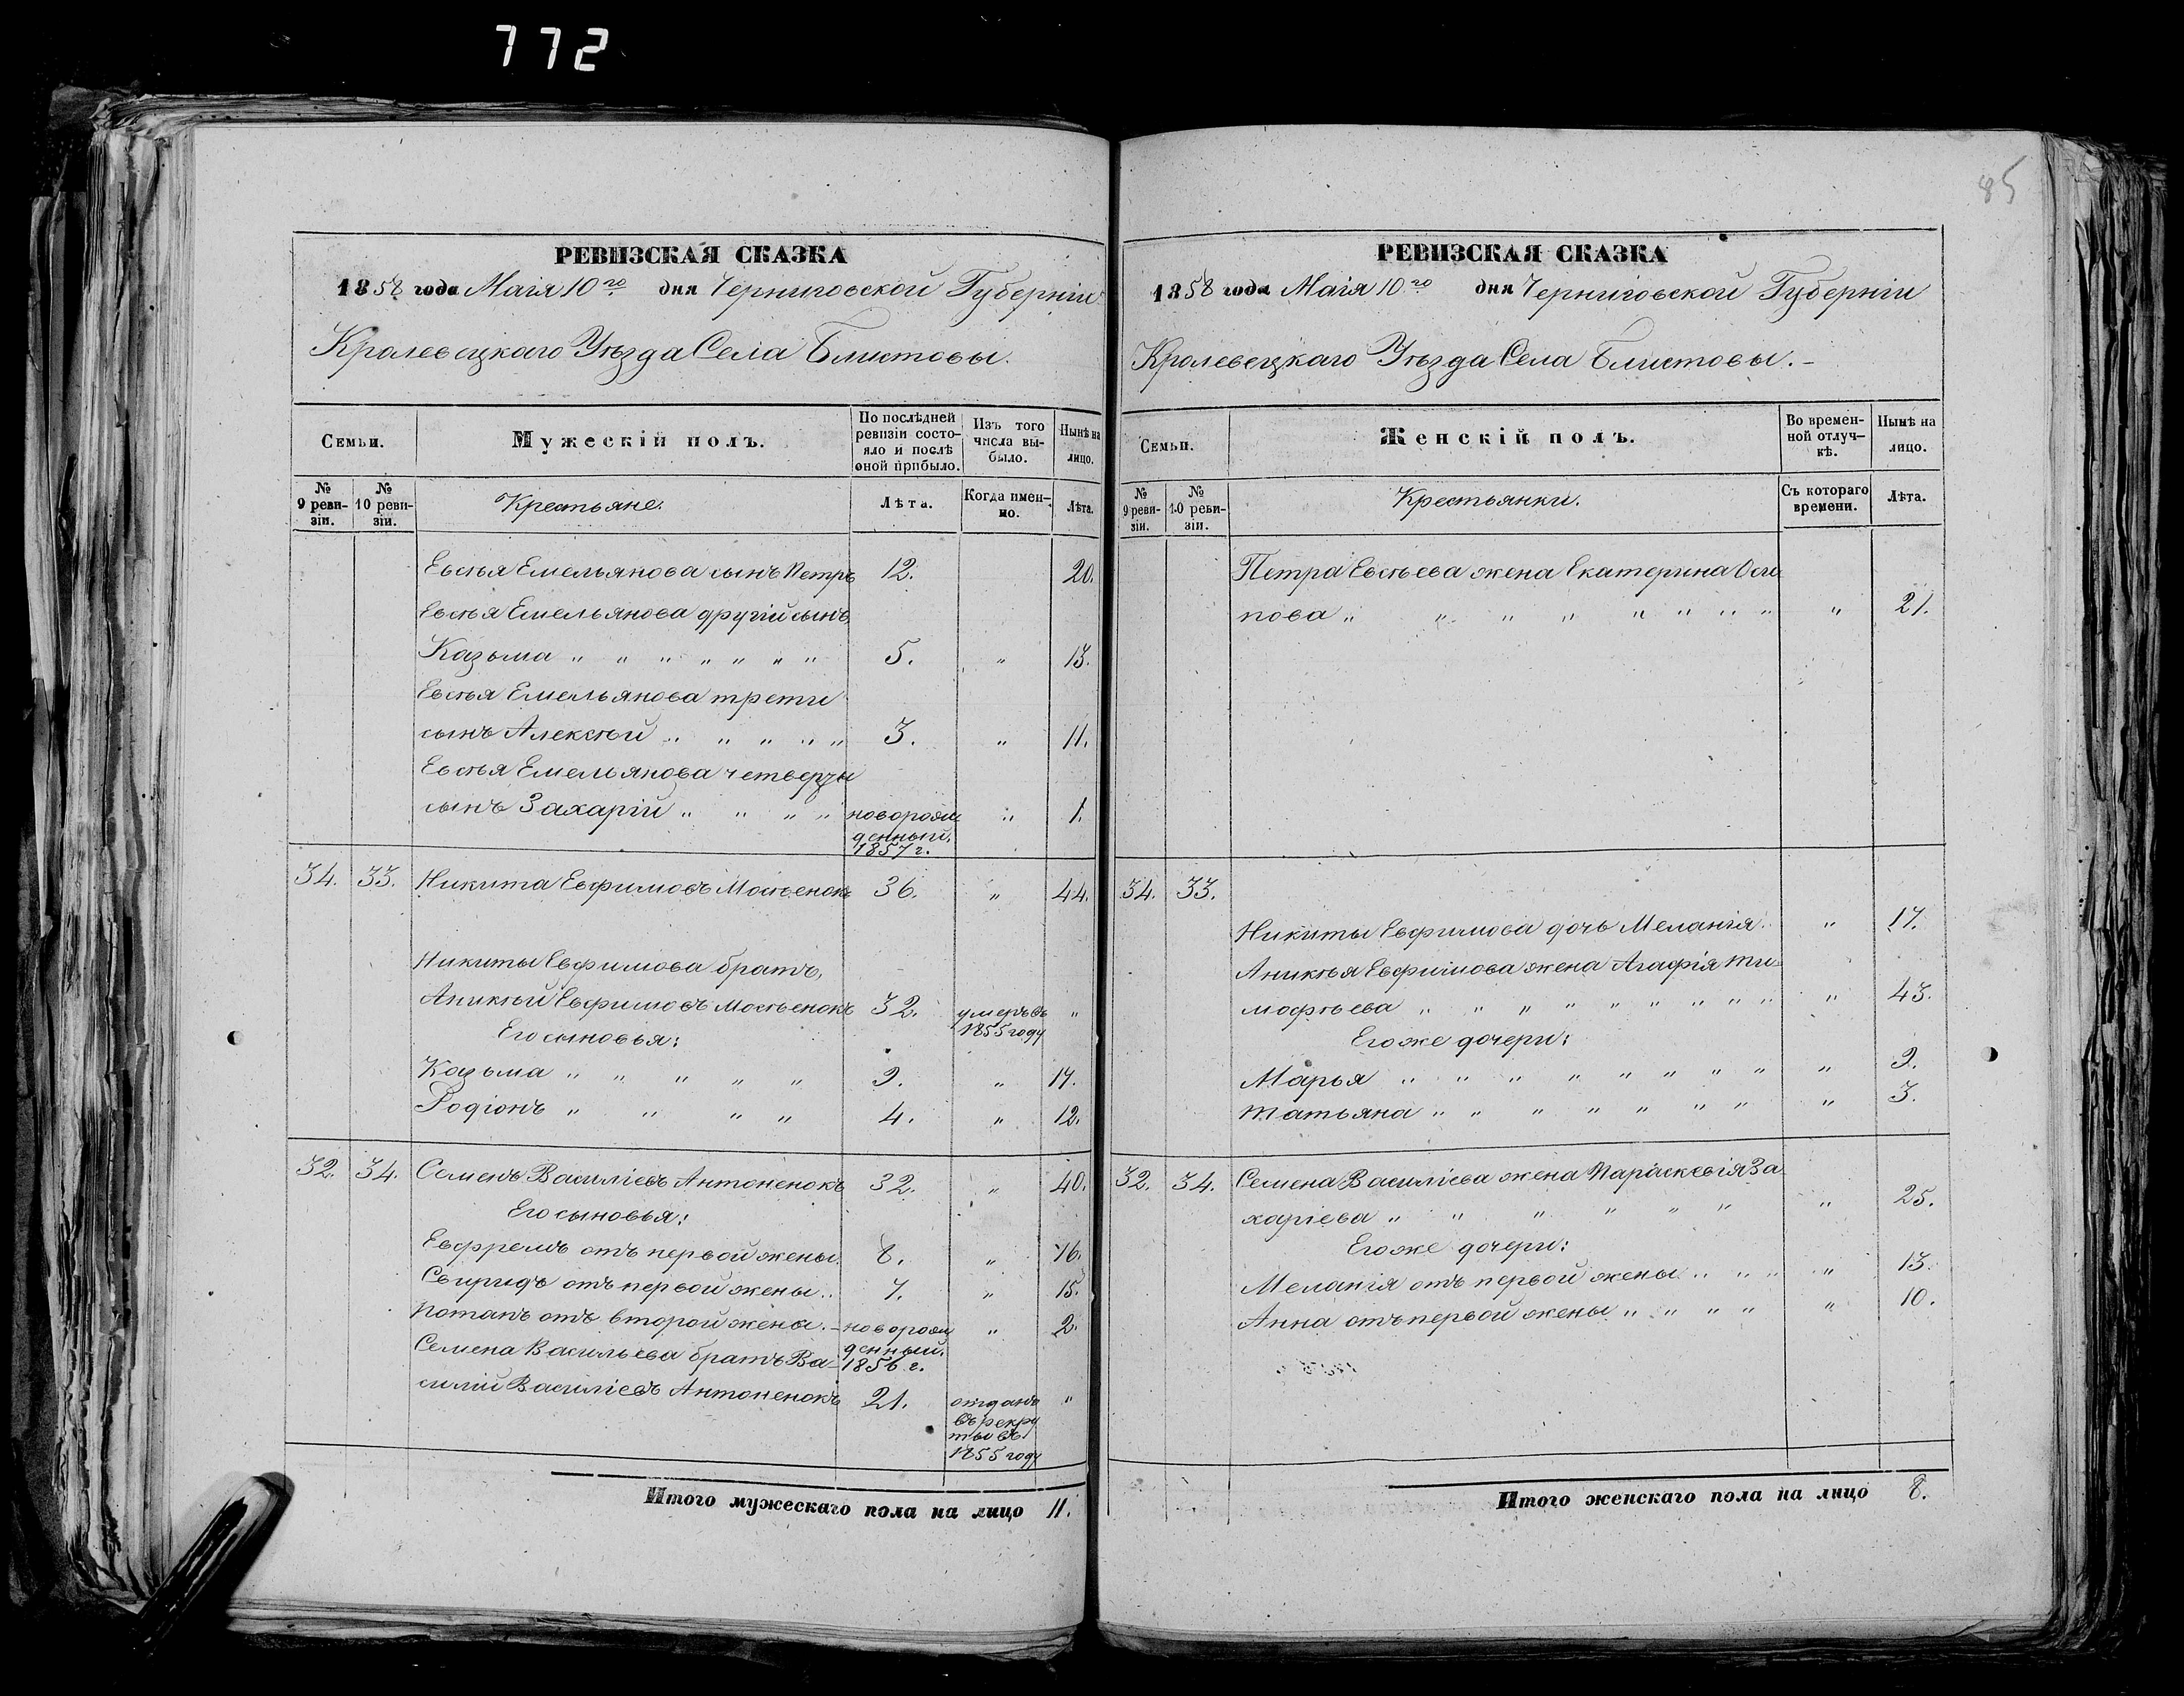 772
85
РЕВИЗСКАЯ СКАЗКА
1858 года Маія 10го дня Черниговской Губерніи
Кролевецкаго Уѣзда Села Блистовы.
Семьи.
Мужескій полъ.
По послѣдней ревизіи состояло и послѣ оной прибыло.
Изъ того числа выбыло.
Нынѣ на лицо.
№ 9 ревизіи.
№ 10 ревизіи.
Крестьяне.
Лѣта.
Когда именно.
Лѣта.
Евсѣя Емельянова сынъ Петръ 12. 20.
Евсѣя Емельянова другій сынъ
Казьма " " " " " " " 5. " 13.
Евсѣя Емельянова трети
сынъ Алексѣй " " " " " 3. " 11.
Евсѣя Емельянова четверты
сынъ Захарій " " " " новорож
денный. 1857 г. " 1.
34. 33. Никита Евфимовъ Мосѣенокъ 36. " 44.
Никиты Евфимова братъ,
Аникѣй Евфимовъ Мосѣенокъ 32. умеръ въ 1855 году "
Его сыновья:
Козьма " " " " " 9. " 17.
Родіонъ " " " " 4. " 12.
32. 34. Семенъ Василіевъ Антоненокъ 32. " 40.
Его сыновья:
Евфремъ отъ первой жены. 8. " 16.
Свиридъ отъ первой жены.. 7. " 15.
Потапъ отъ второй жены. - новорож
денный. 1856 г. " 2.
Семена Васильева братъ Ва-
силій Василіевъ Антоненокъ 21. отданъ
въ рекру
ты въ
1855 году "
Итого мужескаго пола на лицо 11.
РЕВИЗСКАЯ СКАЗКА
1858 года Маія 10го дня Черниговской Губерніи
Кролевецкаго Уѣзда Села Блистовы. -
Семьи.
Женскій полъ.
Во временной отлучкѣ.
Нынѣ на лицо.
№ 9 ревизіи.
№ 10 ревизіи.
Крестьянки.
Съ котораго времени.
Лѣта.
Петра Евсѣева жена Екатерина Оси
пова " " " " " " " " " 21.
34. 33.
Никиты Евфимова дочь Меланія. " 17.
Аникѣя Евфимова жена Агафія Ти-
мофѣева " " " " " " " " " " 43.
Его же дочери:
Марья " " " " " " " " " 9.
Татьяна " " " " " " " " 3.
32. 34. Семена Василіева жена Параскевія За
харіева " " " " " " " 25.
Его же дочери:
Меланія отъ первой жены " " " " 13.
Анна отъ первой жены " " " " " 10.
Итого женскаго пола на лицо 8.